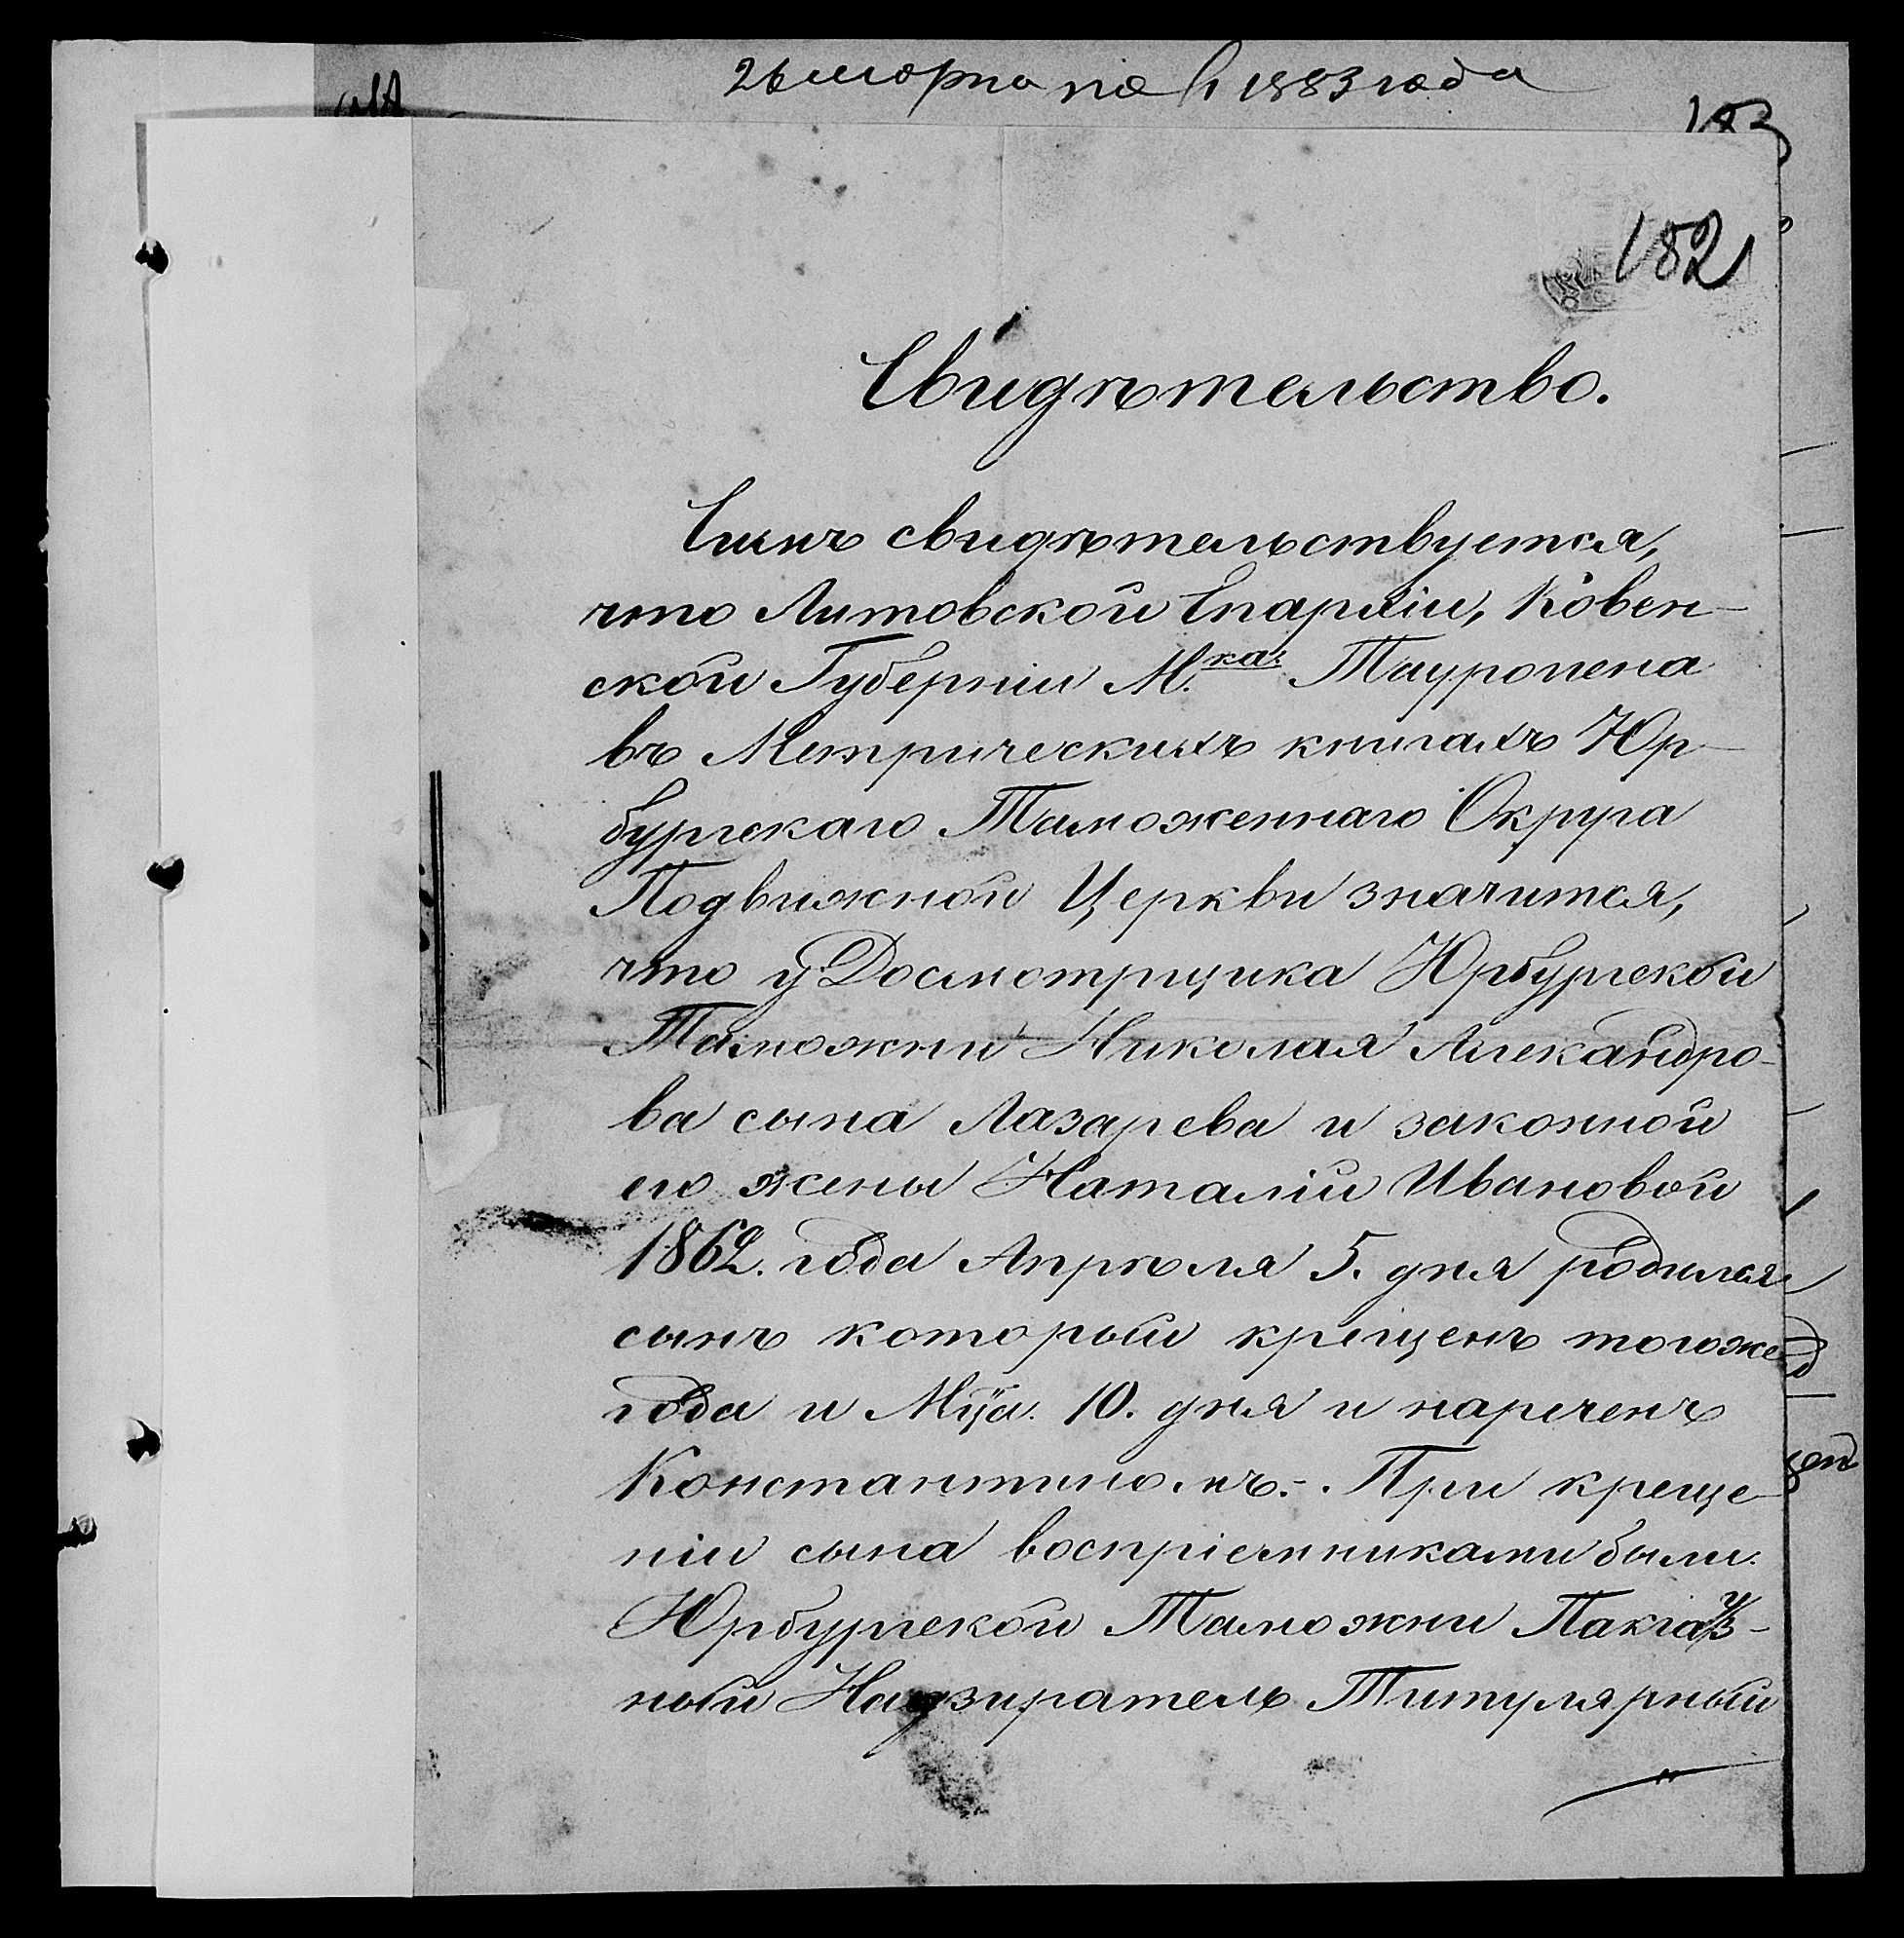 26 марта 1883 года
183
182
Свидѣтельство.
Симъ свидѣтельствуется,
что Литовской Епархіи, Ковен-
ской Губерніи М.ка Таурогена
въ Метрическихъ книгахъ Юр-
бургскаго Таможеннаго Округа
Подвижной Церкви значится,
что у Досмотрщика Юрбургской
Таможни Николая Александро-
ва сына Лазарева и законной
его жены Наталіи Ивановой
1862. года Апрѣля 5. дня родился
сынъ который крещенъ тогоже
года и Мца. 10. дня и нареченъ
Константиномъ.-. При креще-
ніи сына воспріемниками были:
Юрбургской Таможни Пакгауз-
ный Надзиратель Титулярный